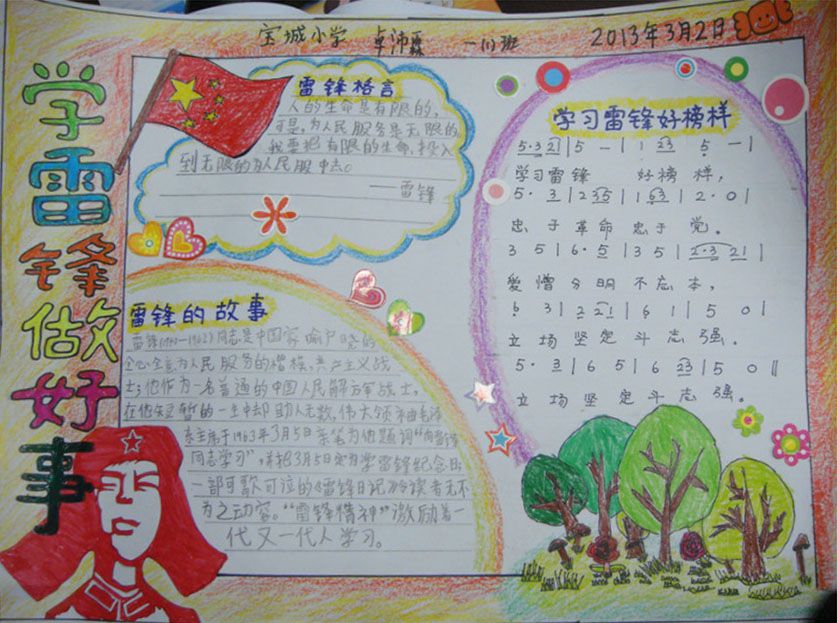 宝城小学 卓沛霖 一(1)班 2013年3月2日
学雷锋做好事
雷锋格言
人的生命是有限的,
可是,为人民服务是无限的,
我要把有限的生命,投入
到无限的为人民服中去。
——雷锋
雷锋的故事
雷锋(1940—1962)同志是中国家喻户晓的
全心全意为人民服务的楷模,共产主义战
士;他作为一名普通的中国人民解放军战士,
在他短暂的一生中却助人无数。伟大领袖毛泽
东主席于1963年3月5日亲笔为他题词“向雷锋
同志学习”,并把3月5日定为学雷锋纪念日
一部可歌可泣的《雷锋日记》令读者无不
为之动容。“雷锋精神”激励着一
代又一代人学习。
学习雷锋好榜样
5·3 2 1 | 5 - | 1 2 3 5 - |
学习雷锋 好榜样,
5· 3 | 2 3 5 | 1 6 3 | 2·0 |
忠于革命忠于党。
3 5 | 6·5 | 3 5 | 2·3 2 1 |
爱憎分明不忘本,
6 3 | 2 2 1 | 6 1 | 5 0 |
立场坚定斗志强。
5· 3 | 6 5 | 6 2 3 | 5 0 ‖
立场坚定斗志强。